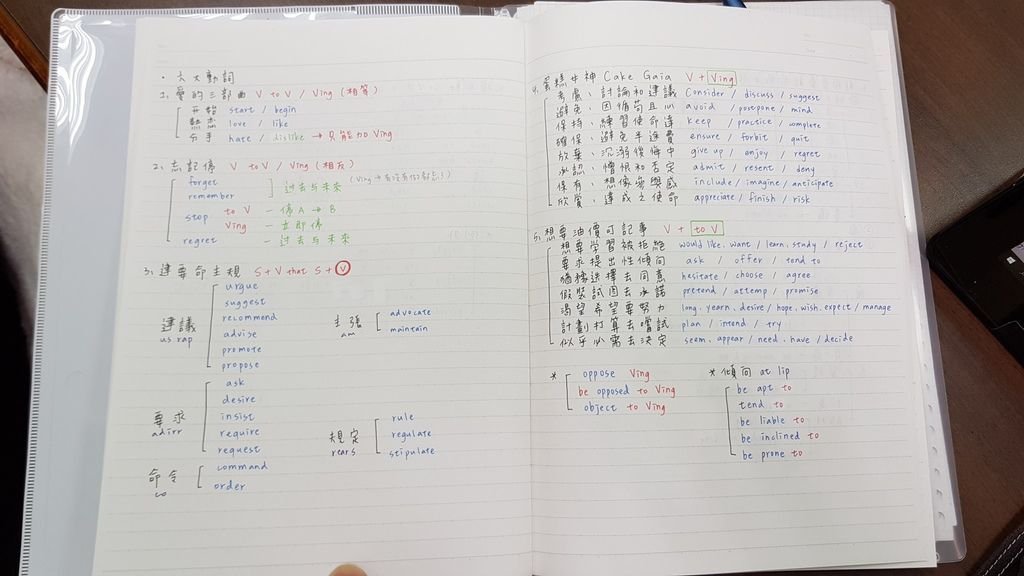 · 六大動詞
1. 愛的三部曲 V to V / Ving (相等)
开始 start / begin
熱恋 love / like
分手 hate / dislike → 只能加 Ving
2. 忘記停 V to V / Ving (相反)
forget
remember
过去与未來 (Ving → 有没有做都忘了)
stop to V - 停A → B
Ving - 立即停
regret - 过去与未來
3. 建要命主規 S + V that S + V
建議 us rap
urgue
suggest
recommend
advise
promote
propose
主張 am
advocate
maintain
要求 adirr
ask
desire
insist
require
request
規定 rears
rule
regulate
stipulate
命令 co
command
order
4. 蛋糕女神 Cake Gaia V + Ving
考慮、討論和建議 Consider / discuss / suggest
避免、因循苟且心 avoid / postpone / mind
保持、練習使命達 keep / practice / complete
確保、避免半途費 ensure / forbit / quit
放棄、沉溺懊悔中 give up / enjoy / regret
承認、憎恨和否定 admit / resent / deny
保有、想像參與感 include / imagine / anticipate
欣賞、達成之使命 appreciate / finish / risk
5. 想要油價可記事 V + to V
想要學習被拒絕 would like. want / learn. study / reject
要求提出性傾向 ask / offer / tend to
猶豫選擇去同意 hesitate / choose / agree
假裝試图去承諾 pretend / attemp / promise
渴望希望要努力 long. yearn. desire / hope. wish. expect / manage
計劃打算去嚐試 plan / intend / try
似乎必需去決定 seem. appear / need. have / decide
* oppose Ving
be opposed to Ving
object to Ving
* 傾向 at lip
be apt to
tend to
be liable to
be inclined to
be prone to